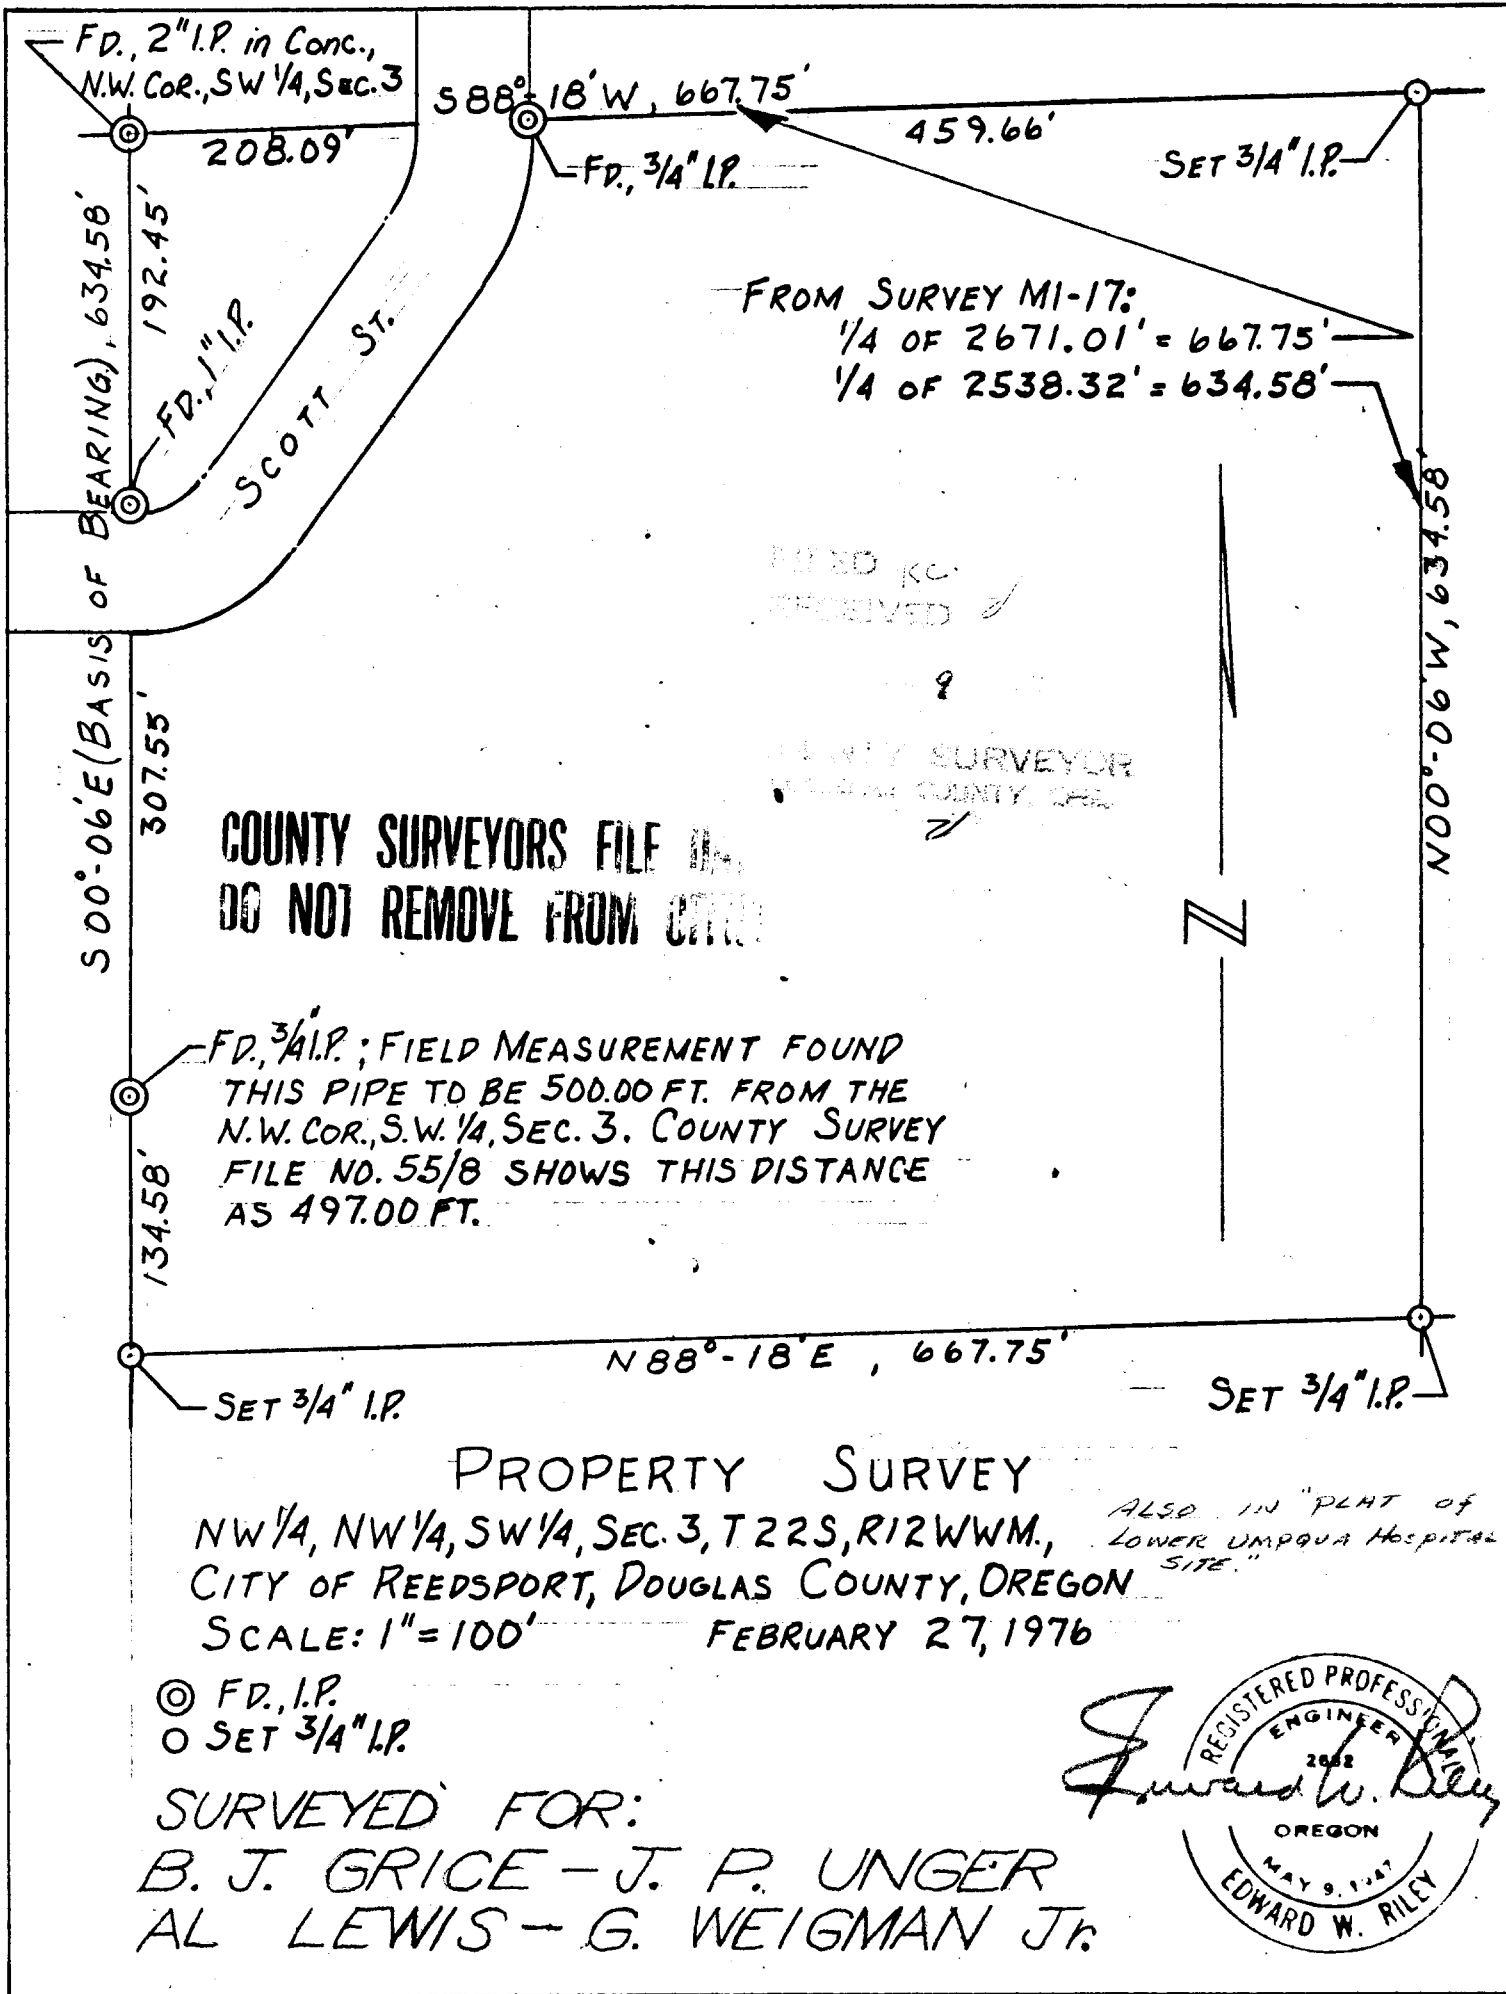 FD., 2" I.P. in Conc.,
N.W. COR., SW 1/4, SEC. 3
S 88°-18' W, 667.75'
208.09'
459.66'
FD., 3/4" I.P.
SET 3/4" I.P.
S 00°-06' E (BASIS OF BEARING), 634.58'
192.45'
FD., 1" I.P.
SCOTT ST.
FROM SURVEY M1-17:
1/4 OF 2671.01' = 667.75'
1/4 OF 2538.32' = 634.58'
N00°-06' W, 634.58'
RECEIVED
SURVEYOR
COUNTY,
307.55'
COUNTY SURVEYORS FILE
DO NOT REMOVE FROM
N
FD., 3/4" I.P.; FIELD MEASUREMENT FOUND
THIS PIPE TO BE 500.00 FT. FROM THE
N.W. COR., S.W. 1/4, SEC. 3. COUNTY SURVEY
FILE NO. 55/8 SHOWS THIS DISTANCE
AS 497.00 FT.
134.58'
N 88°-18' E , 667.75'
SET 3/4" I.P.
SET 3/4" I.P.
PROPERTY SURVEY
NW 1/4, NW 1/4, SW 1/4, SEC. 3, T22S, R12WWM.,
CITY OF REEDSPORT, DOUGLAS COUNTY, OREGON
SCALE: 1" = 100' FEBRUARY 27, 1976
ALSO IN "PLAT of
LOWER UMPQUA HOSPITAL
SITE."
FD., I.P.
SET 3/4" I.P.
SURVEYED FOR:
B. J. GRICE – J. P. UNGER
AL LEWIS – G. WEIGMAN Jr.
REGISTERED PROFESSIONAL
ENGINEER
Edward W. Riley
OREGON
MAY 9,
EDWARD W. RILEY